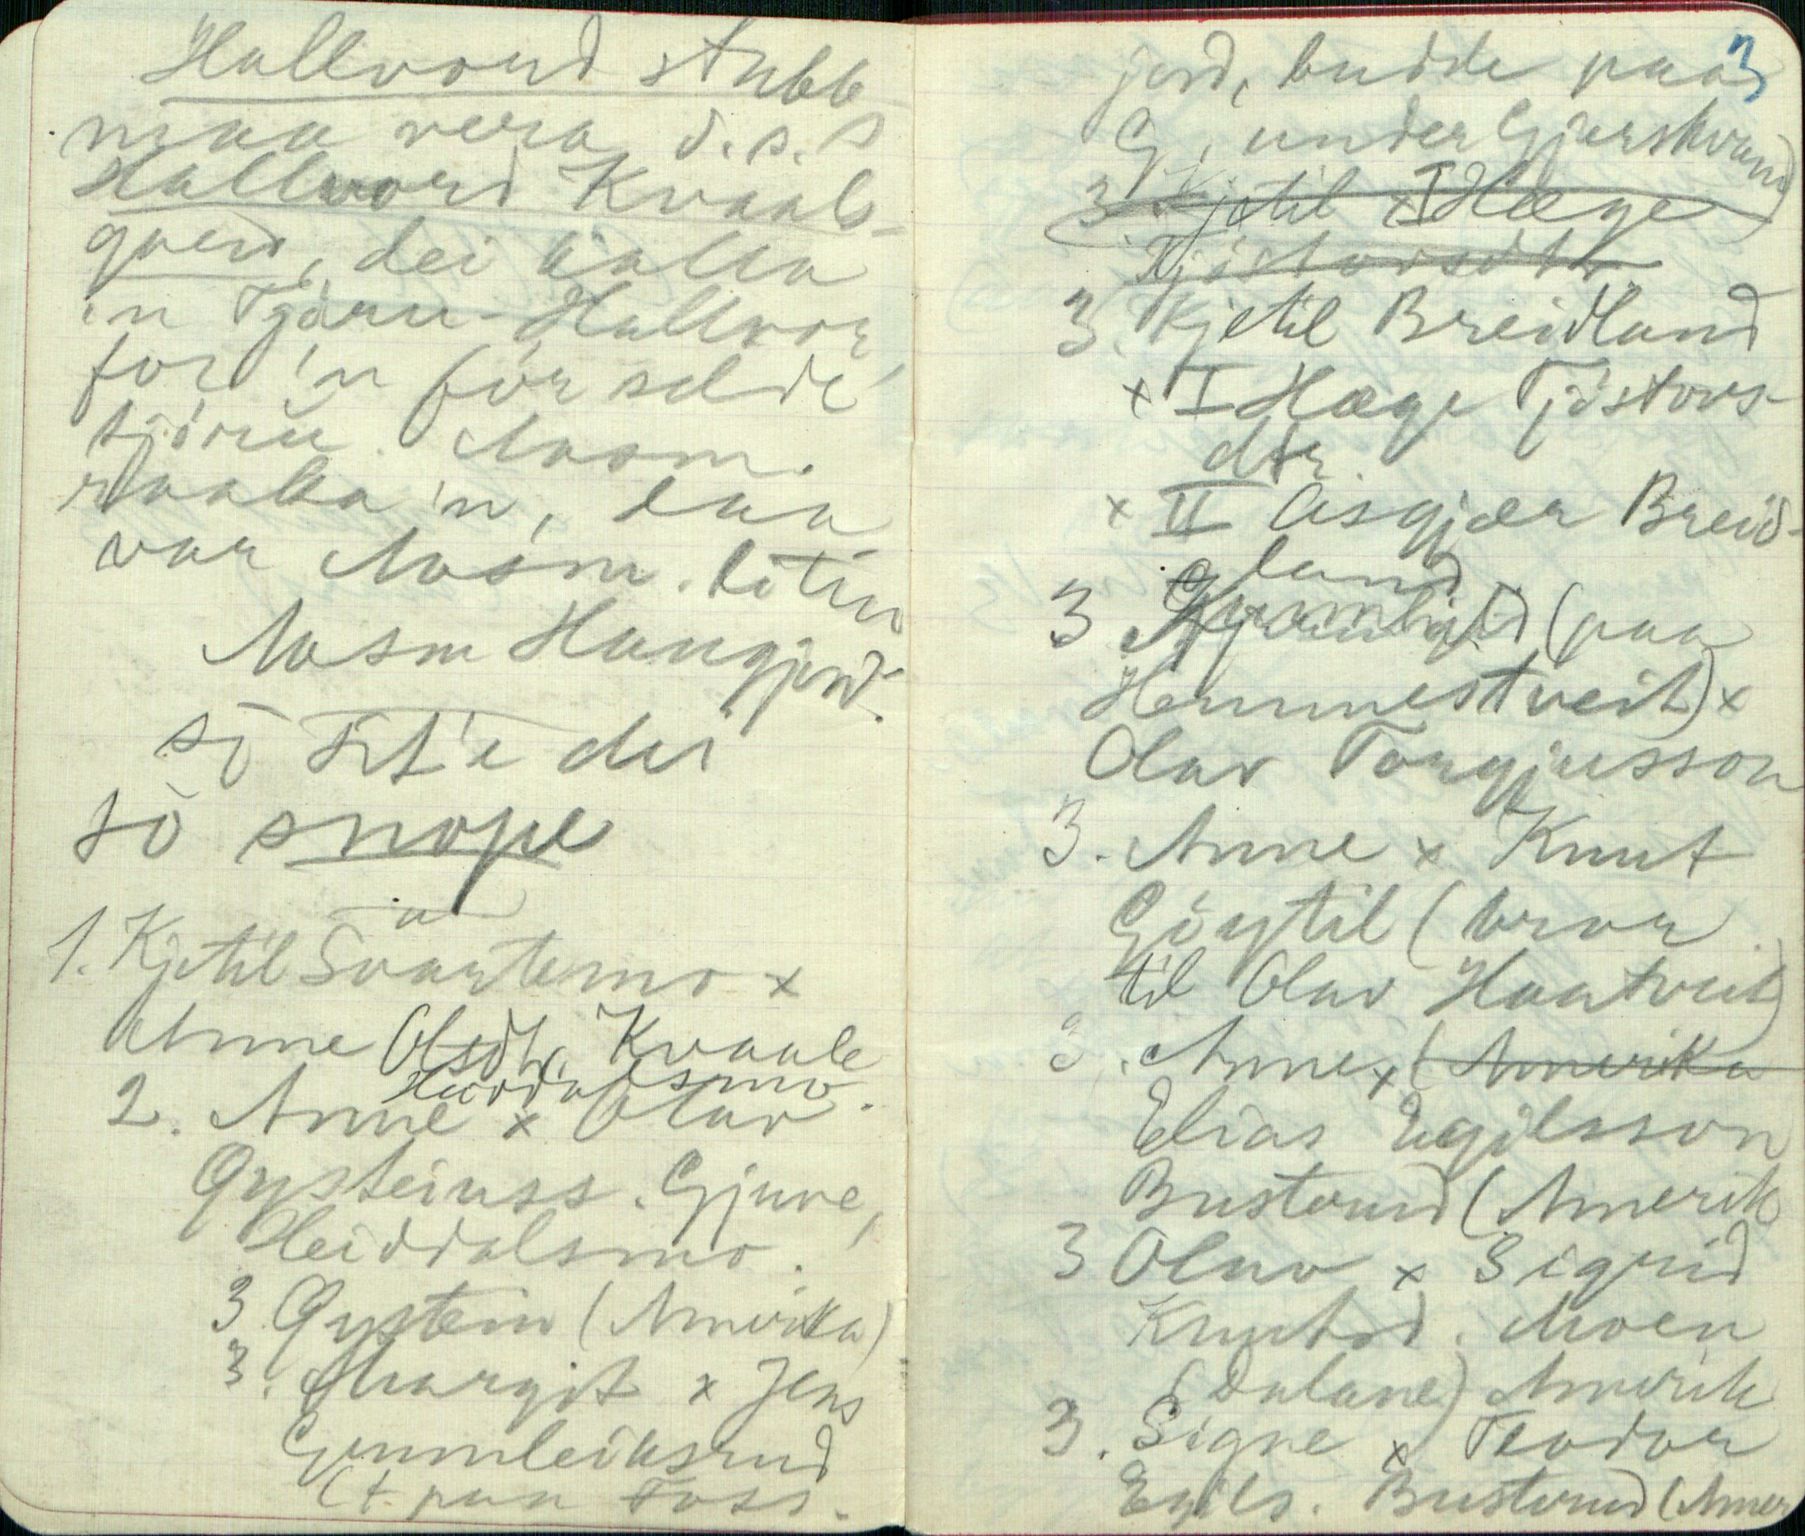 Hallvord Stubb
maa vera d.s.s
Hallvord Kvaale-
gren, dei kalla
'n Tjøru-Hallvor,
for 'n fór selde
tjøru. Aasm.
raaka 'n, daa
var Aasm. liten
Aasm Haugjord.
so tit'e dei
so snope
1. Kjetil Svartemo x
Anne Olsdtr. Kvaale
Heiddalsmo.
2. Anne x Olav
Øysteinss. Gjuve,
Heiddalsmo.
3 Øystein (Amerika)
3. Margit x Jens
Gunnleiksrud
(t. paa Foss.
3
jord, budde paa
G, under Gjerskvam)
3 Kjetil x I Hæge
Tjøstovsdtr.
3. Kjetil Breidland
x I Hæge Tjøstovs-
dtr
x II Aasgjær Breid-
land
3 (paa
Hemmestveit) x
Olav Torgjusson
3. Anne x Knut
Gøytil (bror
til Olav Haatveit)
3. Anne x (Amerika
Elias Egilsson
Bustrund (Amerik
3 Olav x Sigrid
Knutsd. Moen
(Dalane) Amerik
3. Signe x Teodor
Egils. Bustrund (Amer